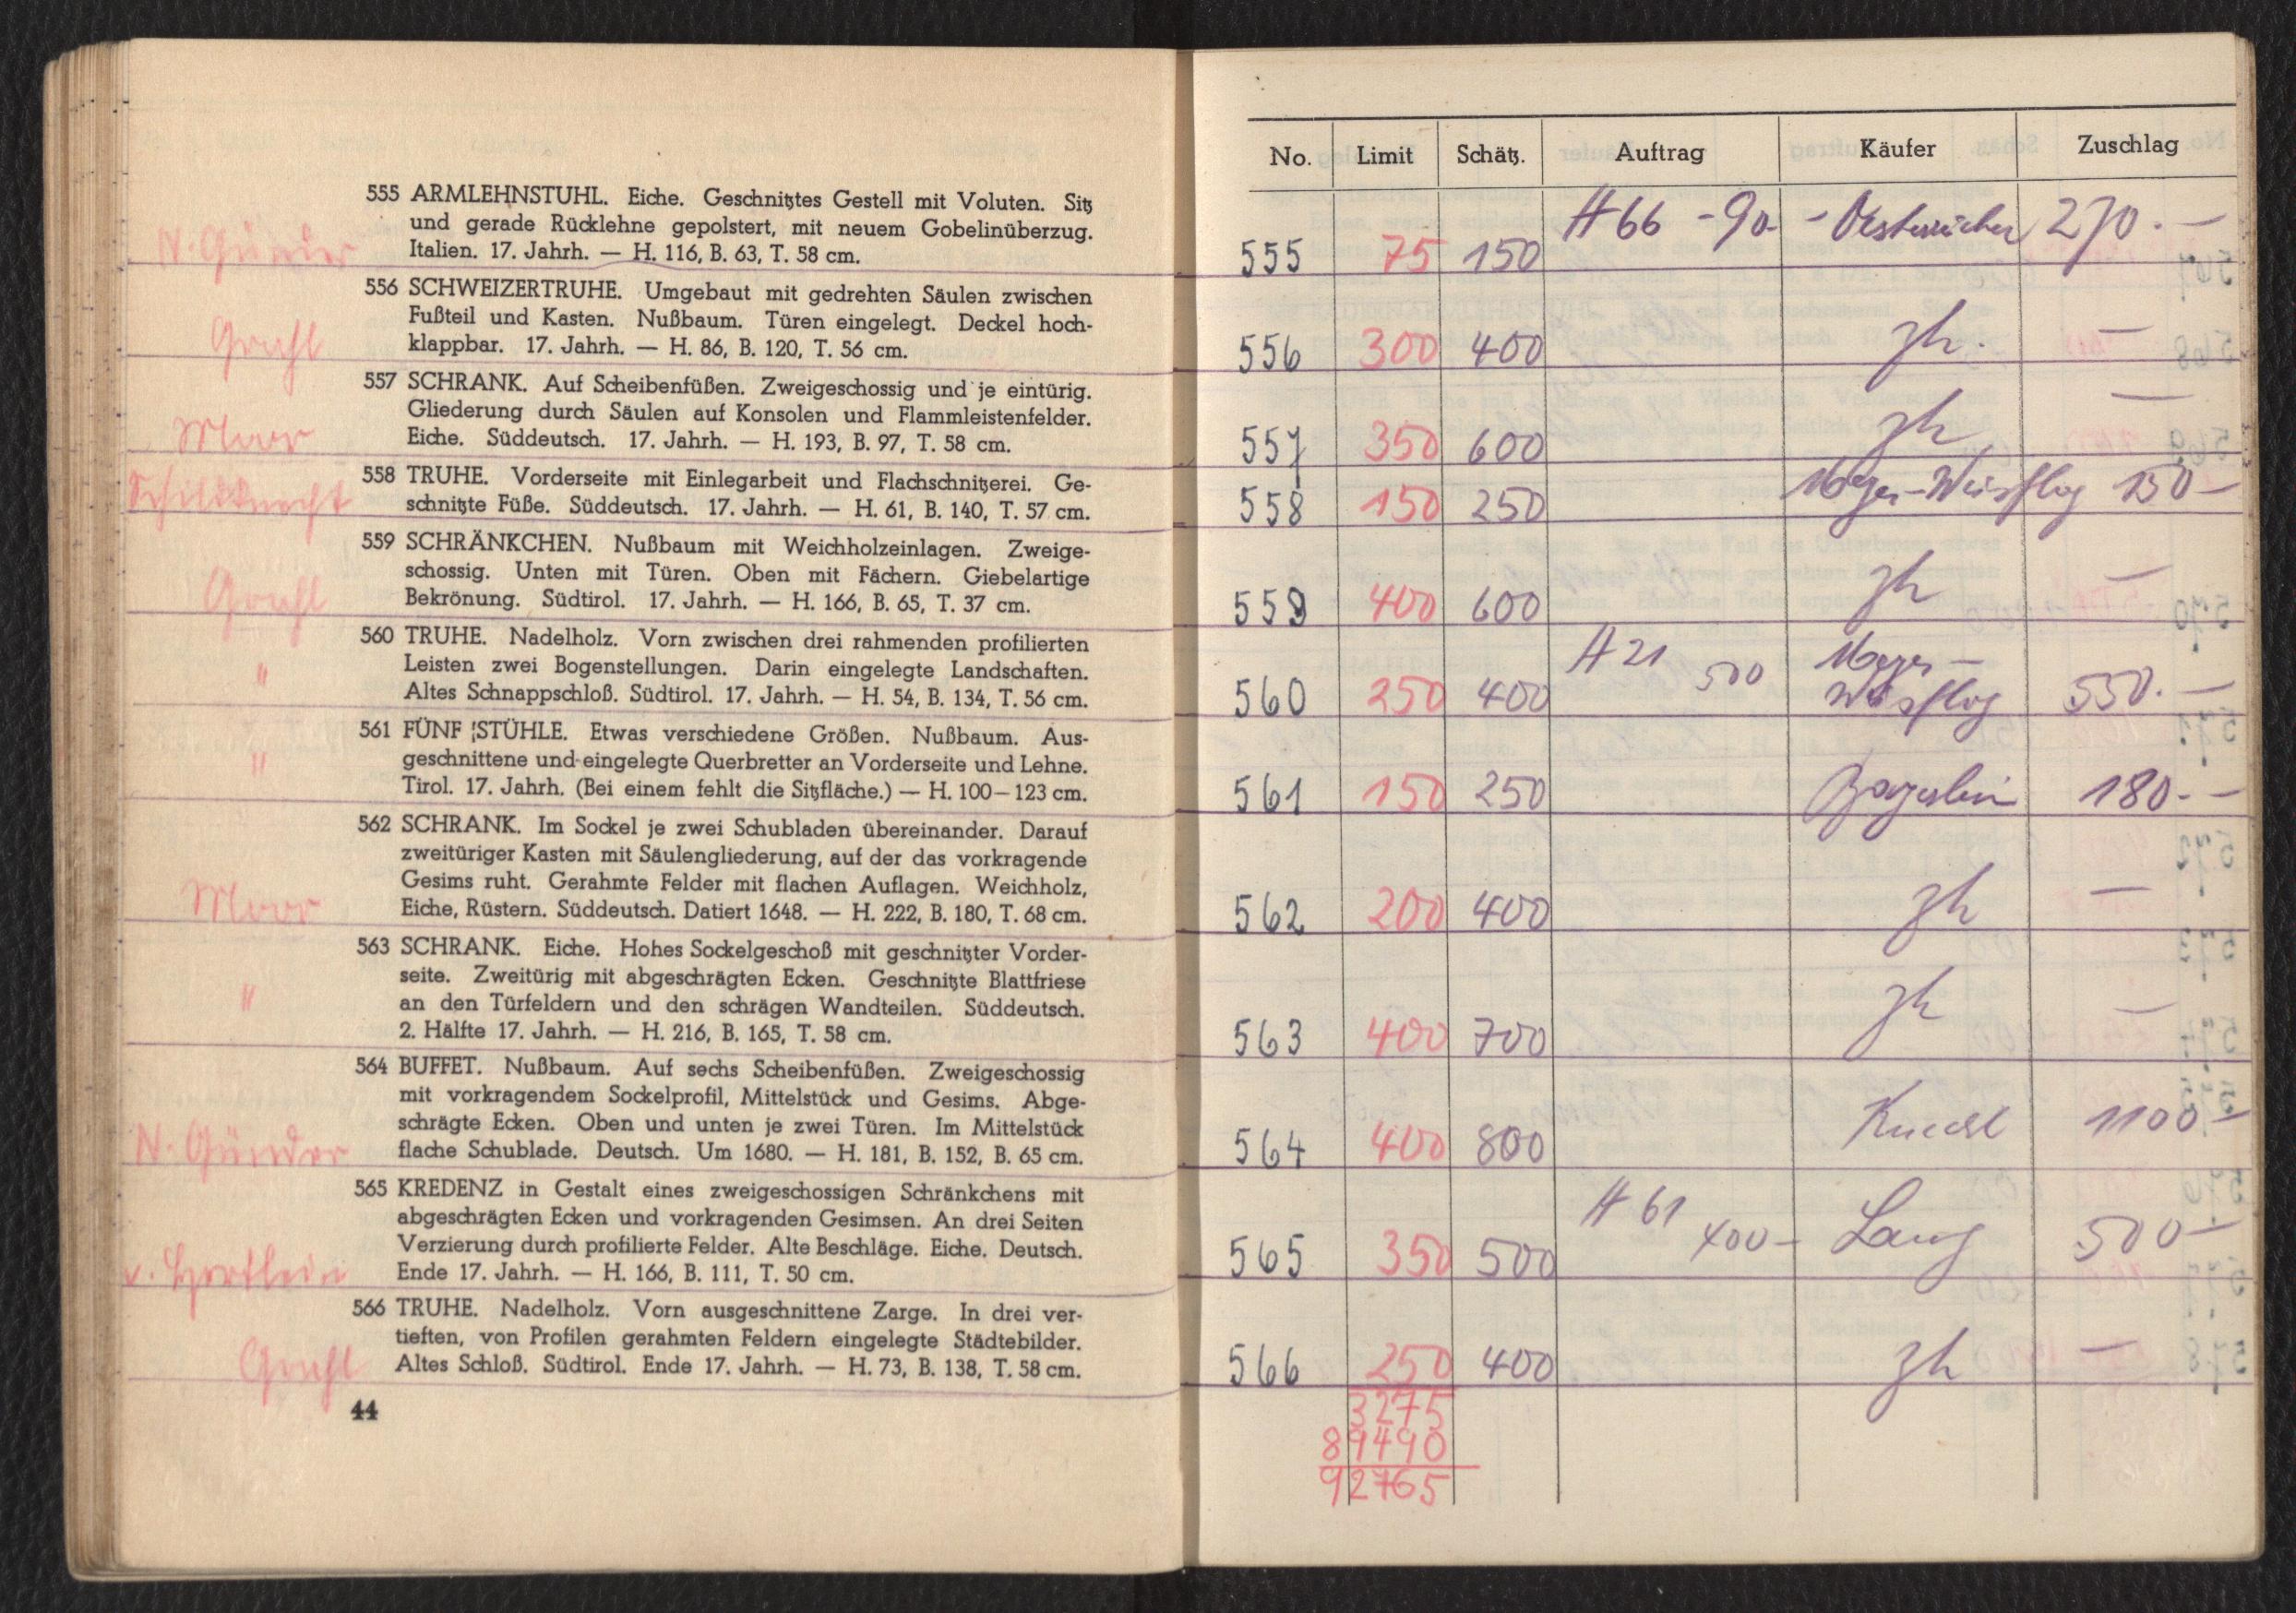 555 ARMLEHNSTUHL. Eiche. Geschnitztes Gestell mit Voluten. Sitz
und gerade Rücklehne gepolstert, mit neuem Gobelinüberzug.
N. Günder
Italien. 17. Jahrh. — H. 116, B. 63, T. 58 cm.
556 SCHWEIZERTRUHE. Umgebaut mit gedrehten Säulen zwischen
Fußteil und Kasten. Nußbaum. Türen eingelegt. Deckel hoch-
Gruhl
klappbar. 17. Jahrh. — H. 86, B. 120, T. 56 cm.
557 SCHRANK. Auf Scheibenfüßen. Zweigeschossig und je eintürig.
Gliederung durch Säulen auf Konsolen und Flammleistenfelder.
Eiche. Süddeutsch. 17. Jahrh. — H. 193, B. 97, T. 58 cm.
558 TRUHE. Vorderseite mit Einlegarbeit und Flachschnitzerei. Ge-
Schildknecht
schnitzte Füße. Süddeutsch. 17. Jahrh. — H. 61, B. 140, T. 57 cm.
559 SCHRÄNKCHEN. Nußbaum mit Weichholzeinlagen. Zweige-
schossig. Unten mit Türen. Oben mit Fächern. Giebelartige
Gruhl
Bekrönung. Südtirol. 17. Jahrh. — H. 166, B. 65, T. 37 cm.
560 TRUHE. Nadelholz. Vorn zwischen drei rahmenden profilierten
Leisten zwei Bogenstellungen. Darin eingelegte Landschaften.
"
Altes Schnappschloß. Südtirol. 17. Jahrh. — H. 54, B. 134, T. 56 cm.
561 FÜNF STÜHLE. Etwas verschiedene Größen. Nußbaum. Aus-
geschnittene und eingelegte Querbretter an Vorderseite und Lehne.
"
Tirol. 17. Jahrh. (Bei einem fehlt die Sitzfläche.) — H. 100–123 cm.
562 SCHRANK. Im Sockel je zwei Schubladen übereinander. Darauf
zweitüriger Kasten mit Säulengliederung, auf der das vorkragende
Gesims ruht. Gerahmte Felder mit flachen Auflagen. Weichholz,
Eiche, Rüstern. Süddeutsch. Datiert 1648. — H. 222, B. 180, T. 68 cm.
563 SCHRANK. Eiche. Hohes Sockelgeschoß mit geschnitzter Vorder-
seite. Zweitürig mit abgeschrägten Ecken. Geschnitzte Blattfriese
"
an den Türfeldern und den schrägen Wandteilen. Süddeutsch.
2. Hälfte 17. Jahrh. — H. 216, B. 165, T. 58 cm.
564 BUFFET. Nußbaum. Auf sechs Scheibenfüßen. Zweigeschossig
mit vorkragendem Sockelprofil, Mittelstück und Gesims. Abge-
schrägte Ecken. Oben und unten je zwei Türen. Im Mittelstück
N. Günder
flache Schublade. Deutsch. Um 1680. — H. 181, B. 152, B. 65 cm.
565 KREDENZ in Gestalt eines zweigeschossigen Schränkchens mit
abgeschrägten Ecken und vorkragenden Gesimsen. An drei Seiten
Verzierung durch profilierte Felder. Alte Beschläge. Eiche. Deutsch.
v. Hertlein
Ende 17. Jahrh. — H. 166, B. 111, T. 50 cm.
566 TRUHE. Nadelholz. Vorn ausgeschnittene Zarge. In drei ver-
tieften, von Profilen gerahmten Feldern eingelegte Städtebilder.
Gruhl
Altes Schloß. Südtirol. Ende 17. Jahrh. — H. 73, B. 138, T. 58 cm.
44
No. Limit Schätz. Auftrag Käufer Zuschlag
555 75 150 H 66 - 90 - Oesterreicher 270.—
556 300 400 zh. —
557 350 600 zh —
558 150 250 Meyer-Weisflog 150 —
559 400 600 zh —
560 250 400 H 21 500 Meyer-
Weisflog 550.—
561 150 250 Bayerlein 180.—
562 200 400 zh —
563 400 700 zh —
564 400 800 1100 —
565 350 500 H 61 400 — Lang 500 —
566 250 400 zh —
3275
89490
92765